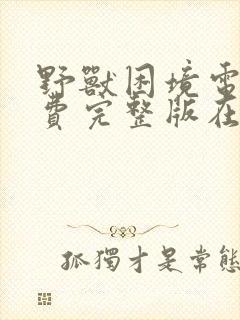 野獸困境電
費完整版在
孤獨才是常態